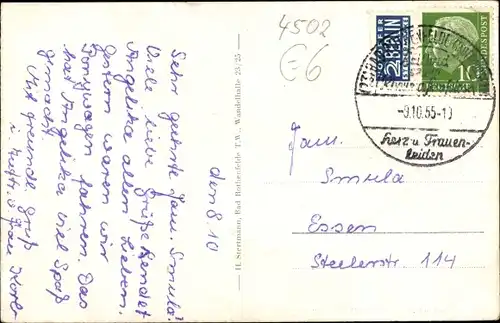 4502
E6
den 8.10
Sehr geehrte Fam. Smula!
Viele liebe Grüße sendet
Angelika allen Lieben.
Gestern waren wir
Ponywagen fahren. Das
hat Angelika viel Spaß
gemacht.
Mit freundl. Gruß
H. Sterrmann, Bad Rothenfelde T.W., Wandelhalle 23/25
NOTOPFER
2 BERLIN
STEUERMARKE
DEUTSCHE BUNDESPOST
10
-9.10.55-10
Herz u Frauen-
leiden
Fam.
Smula
Essen
Steelerstr. 114